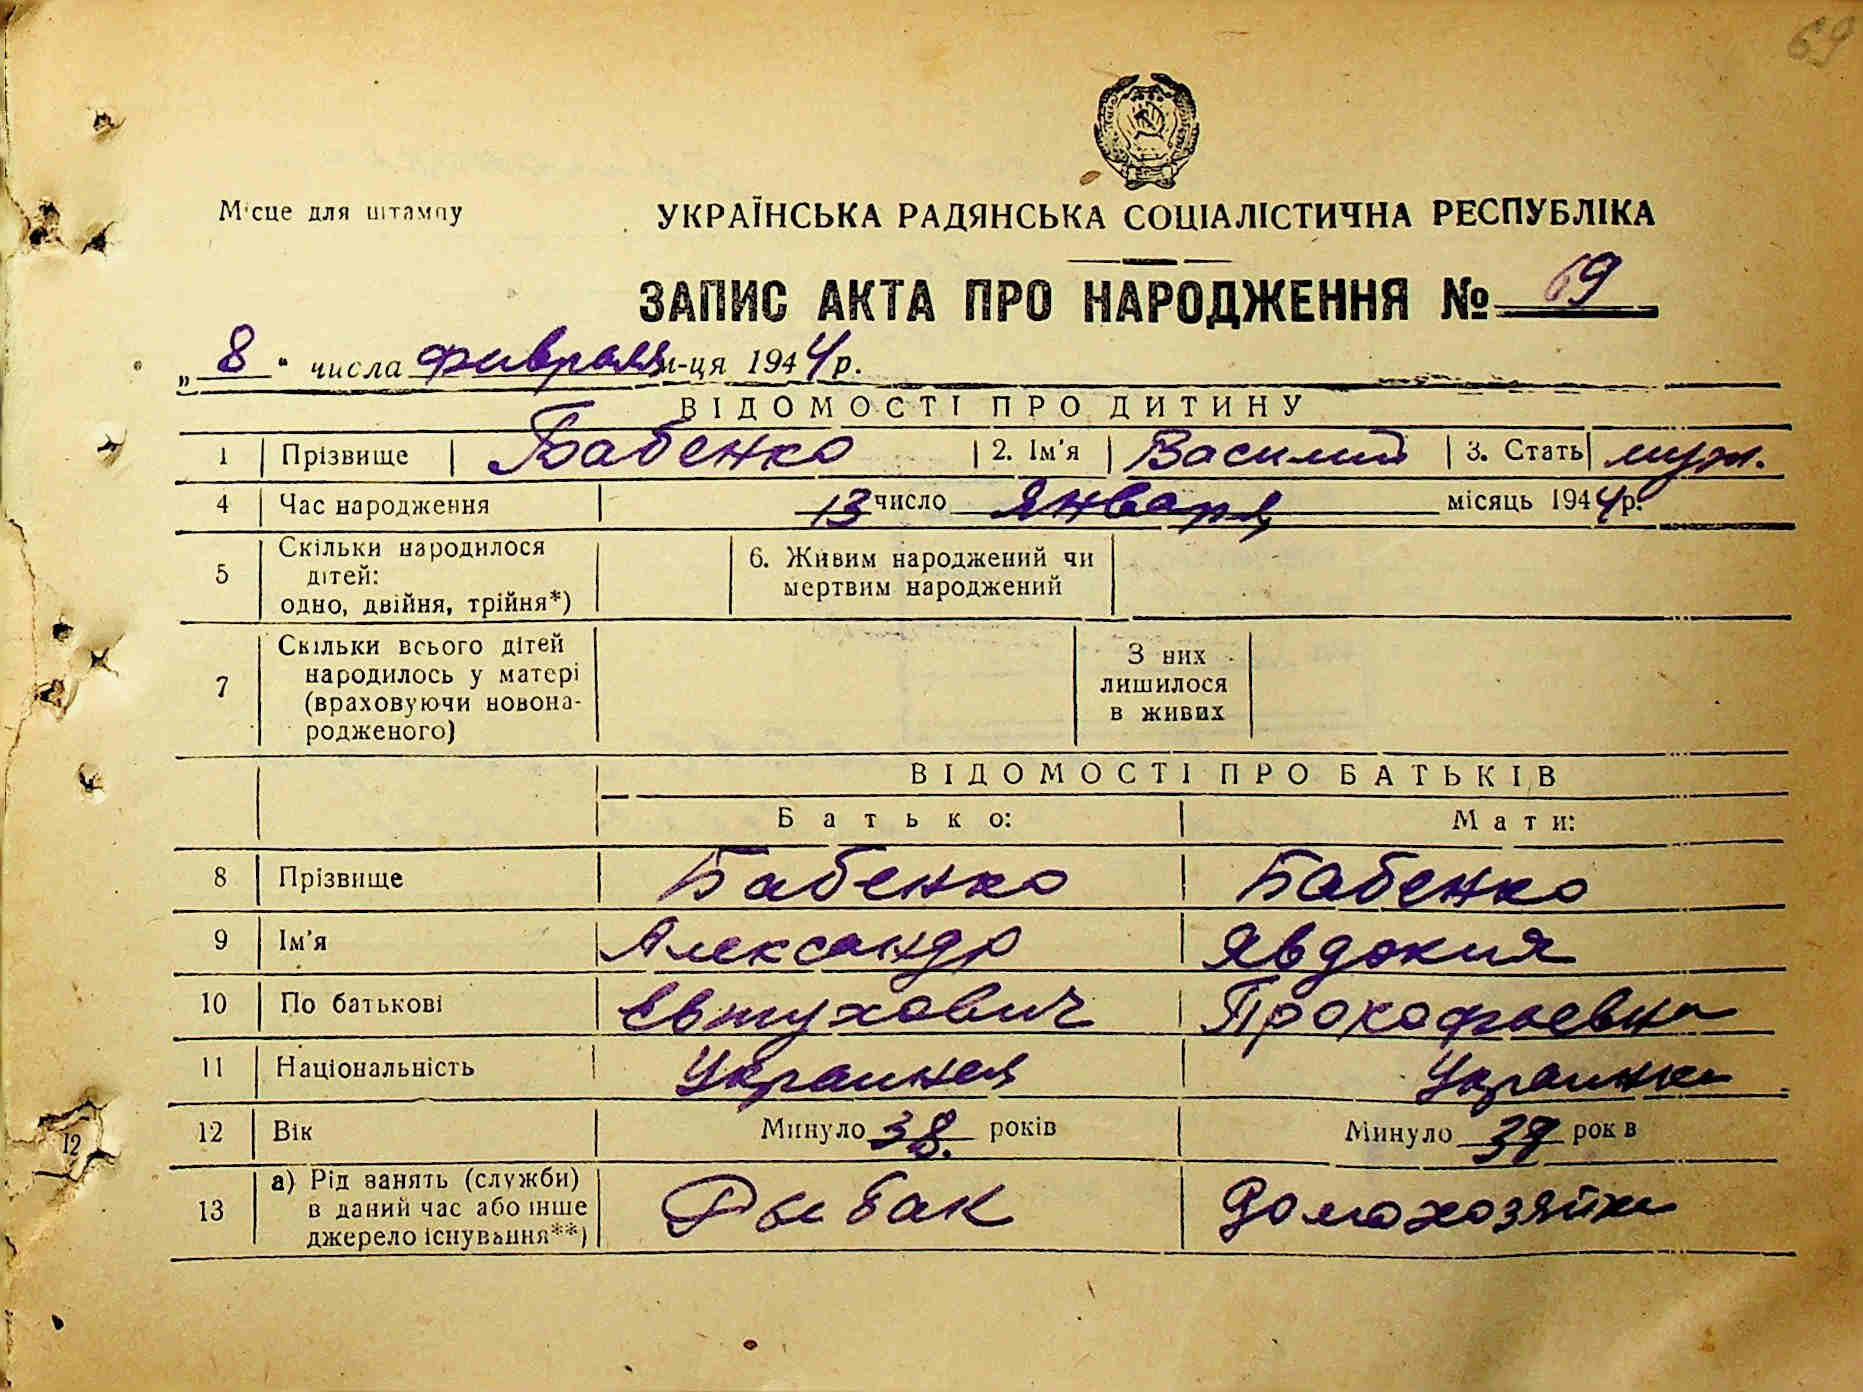 69
Місце для штампу
УКРАЇНСЬКА РАДЯНСЬКА СОЦІАЛІСТИЧНА РЕСПУБЛІКА
ЗАПИС АКТА ПРО НАРОДЖЕННЯ № 69
„ 8 " числа февраля м-ця 1944 р.
ВІДОМОСТІ ПРО ДИТИНУ
1 Прізвище Бабенко 2. Ім'я Василий 3. Стать муж.
4 Час народження 13 число января місяць 1944 р.
5 Скільки народилося дітей: одно, двійня, трійня*) 6. Живим народжений чи мертвим народжений
7 Скільки всього дітей народилось у матері (враховуючи новонародженого) З них лишилося в живих
ВІДОМОСТІ ПРО БАТЬКІВ
Батько: Мати:
8 Прізвище Бабенко Бабенко
9 Ім'я Александр Явдокия
10 По батькові Евтухович Прокофьевна
11 Національність Украинец Украинка
12 Вік Минуло 38 років Минуло 37 років
13 а) Рід занять (служби) в даний час або інше джерело існування**) Рыбак Домохозяйка
12